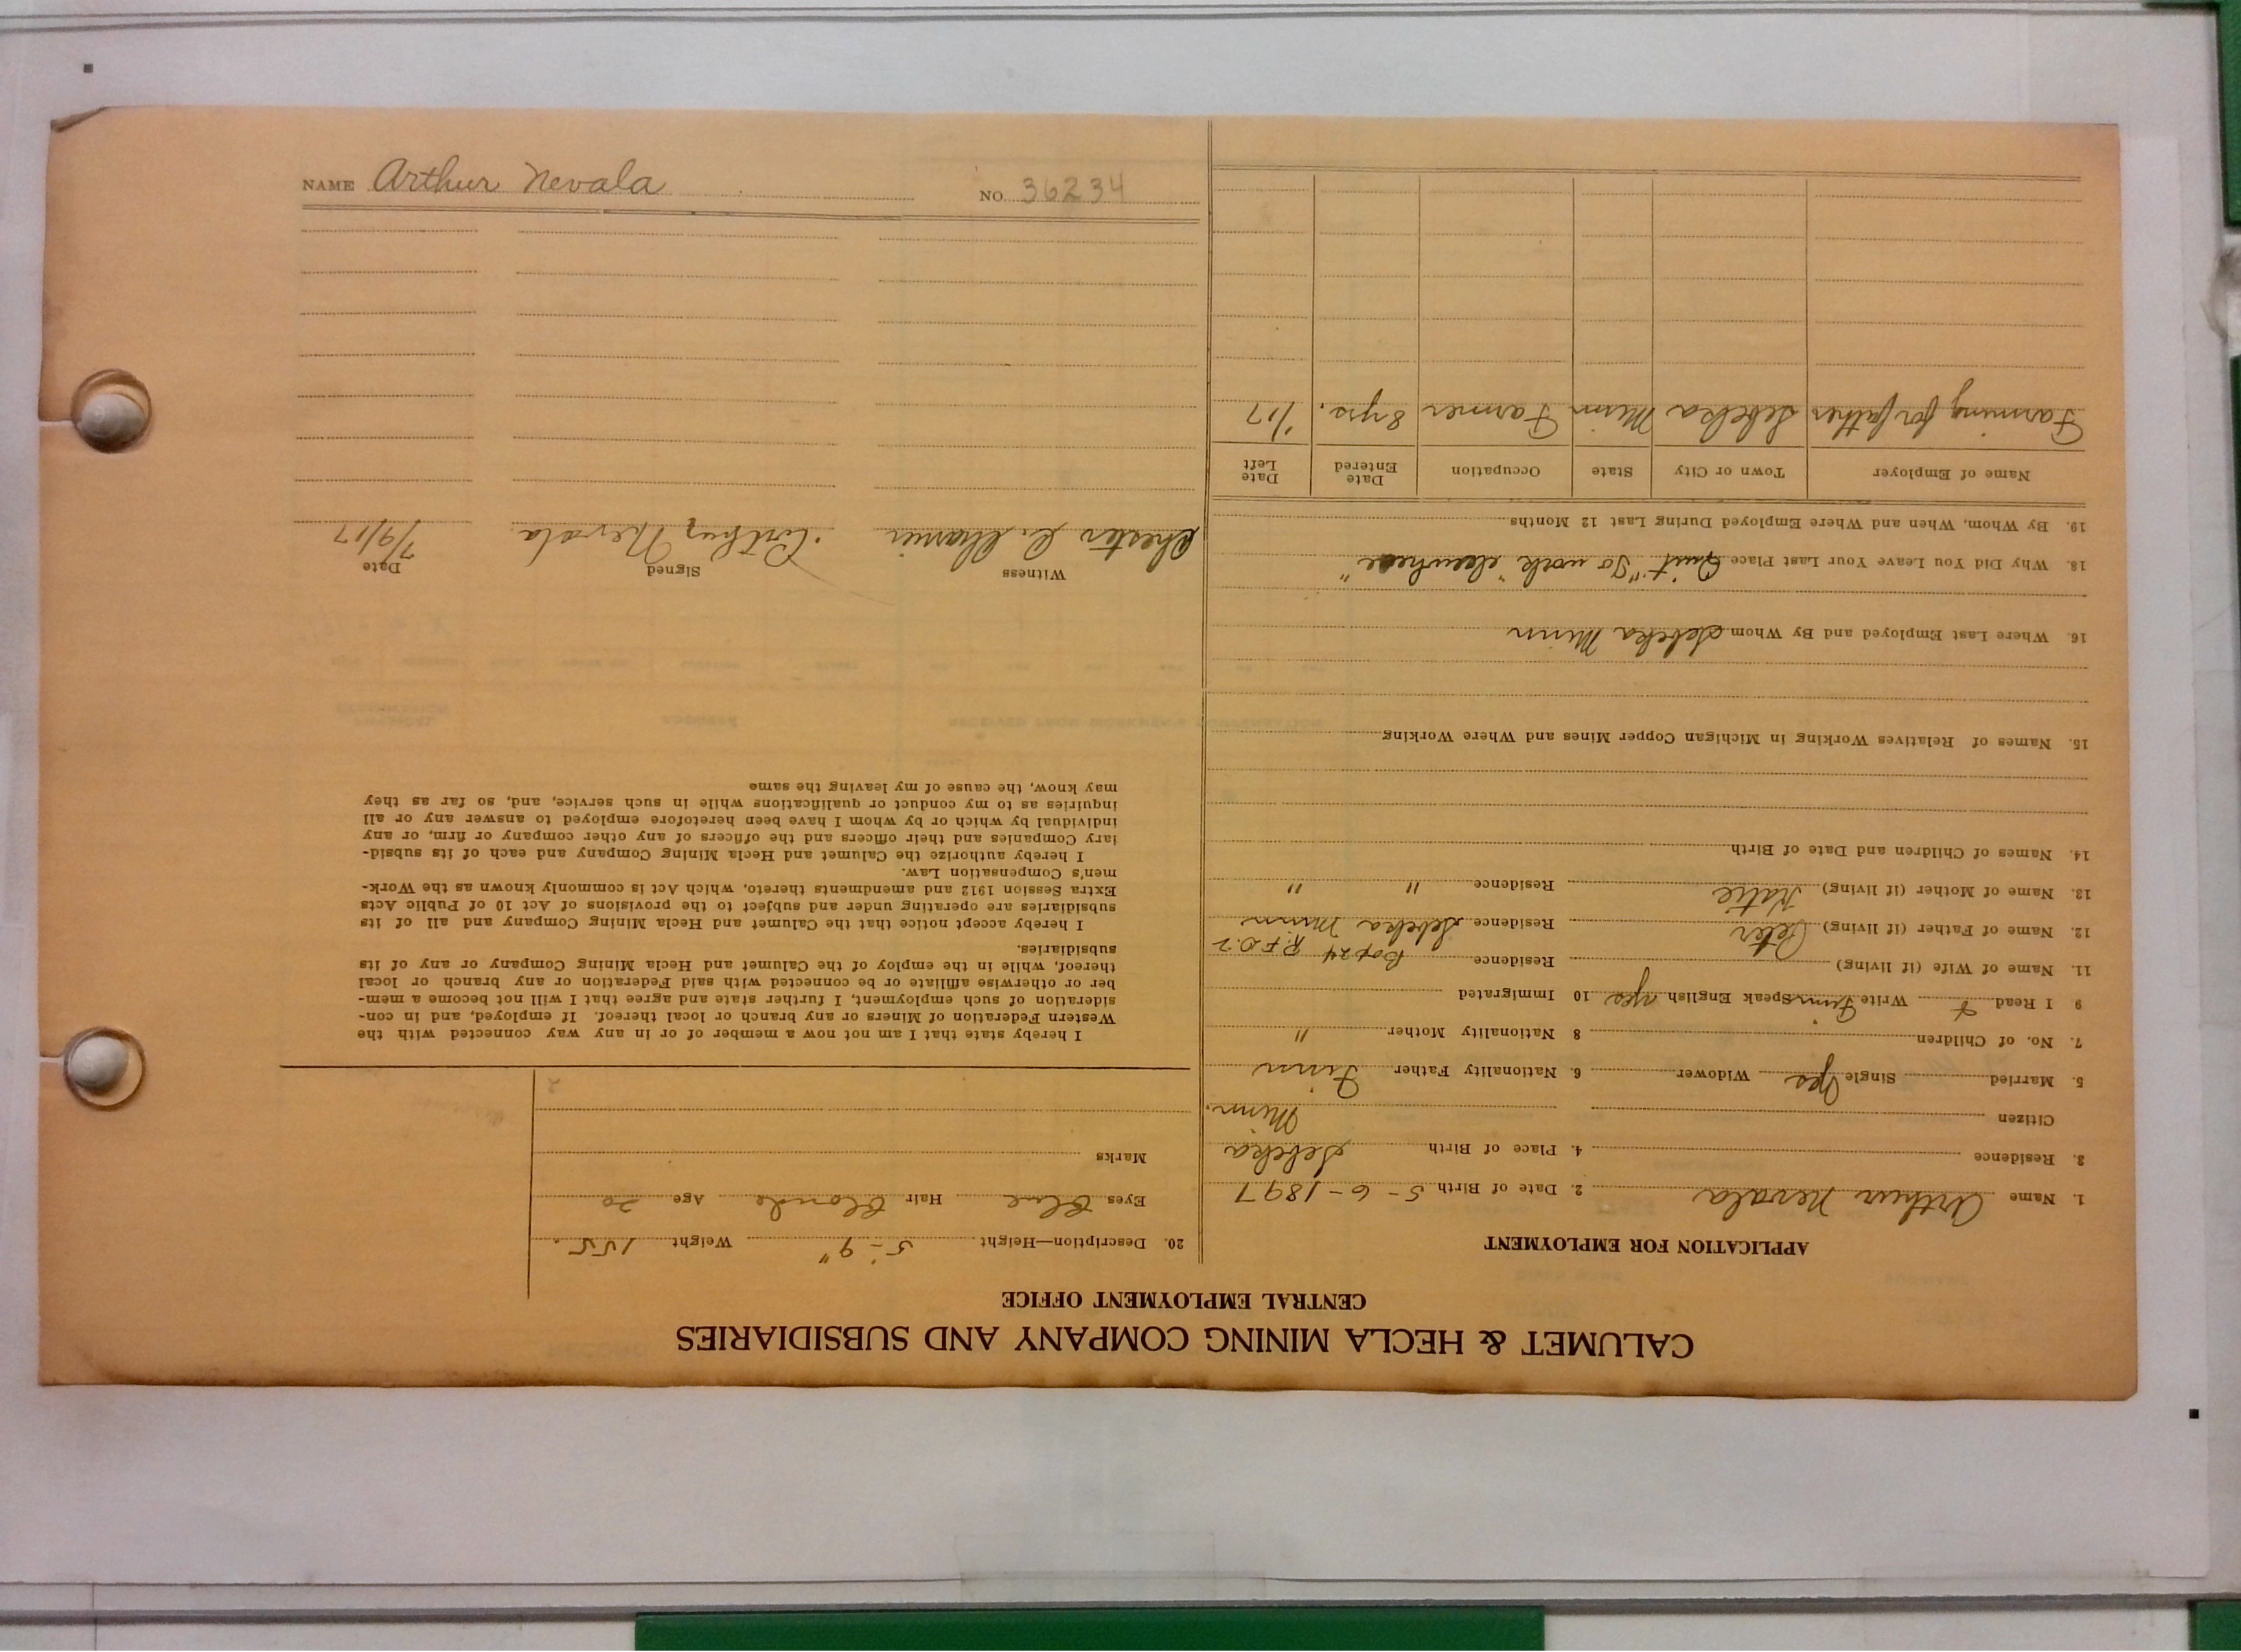 NAME Arthur Nevala NO. 36234
CALUMET & HECLA MINING COMPANY AND SUBSIDIARIES
CENTRAL EMPLOYMENT OFFICE
APPLICATION FOR EMPLOYMENT
1. Name Arthur Nevala 2. Date of Birth 5-6-1897
3. Residence 4. Place of Birth Sebeka
Citizen Minn.
5. Married Single Yes Widower 6. Nationality Father Finn
7. No. of Children 8 Nationality Mother "
9 I Read Write Finn Speak English yes 10 Immigrated
11. Name of Wife (if living) Residence Box 24 R.F.D. 2
12. Name of Father (if living) Peter Residence Sebeka Minn
13. Name of Mother (if living) Katie Residence " "
14. Names of Children and Date of Birth
15. Names of Relatives Working in Michigan Copper Mines and Where Working
16. Where Last Employed and By Whom Sebeka Minn
18. Why Did You Leave Your Last Place Quit "To work elsewhere"
19. By Whom, When and Where Employed During Last 12 Months
Name of Employer Town or City State Occupation Date Entered Date Left
Farming for father Sebeka Minn Farmer 8 yrs. 1/17
20. Description—Height 5'-9" Weight 155.
Eyes Blue Hair Blonde Age 20
Marks
I hereby state that I am not now a member of or in any way connected with the
Western Federation of Miners or any branch or local thereof. If employed, and in con-
sideration of such employment, I further state and agree that I will not become a mem-
ber or otherwise affiliate or be connected with said Federation or any branch or local
thereof, while in the employ of the Calumet and Hecla Mining Company or any of its
subsidiaries.
I hereby accept notice that the Calumet and Hecla Mining Company and all of its
subsidiaries are operating under and subject to the provisions of Act 10 of Public Acts
Extra Session 1912 and amendments thereto, which Act is commonly known as the Work-
men's Compensation Law.
I hereby authorize the Calumet and Hecla Mining Company and each of its subsid-
iary Companies and their officers and the officers of any other company or firm, or any
individual by which or by whom I have been heretofore employed to answer any or all
inquiries as to my conduct or qualifications while in such service, and, so far as they
may know, the cause of my leaving the same
Witness Signed Date
Chester Nevala 7/9/17